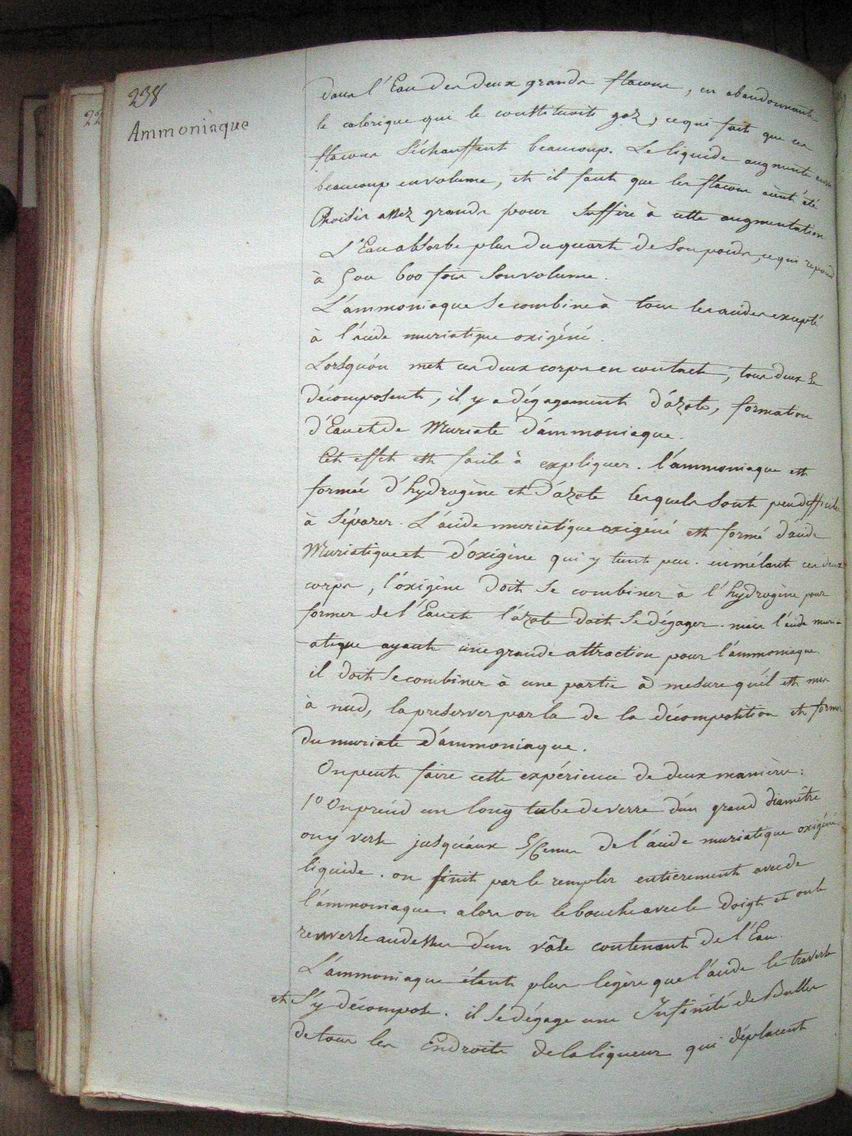 238
Ammoniaque
dans l'Eau des deux grands flacons, en abandonnant
le calorique qui le constituoit gaz, ce qui fait que ces
flacons s'échauffent beaucoup. Le liquide augmente aussi
beaucoup en volume, et il faut que les flacons aient été
Choisis assez grands pour suffire à cette augmentation
L'Eau absorbe plus du quart de son poids, ce qui répond
à 5 ou 600 fois son volume.
L'ammoniaque se combine à tous les acides excepté
à l'acide muriatique oxigéné.
Lorsqu'on met ces deux corps en contact, tous deux se
décomposent, il y a dégagement d'azote, formation
d'Eau et de Muriate d'ammoniaque.
Cet effet est facile à expliquer. l'ammoniaque est
formée d'hydrogène et d'azote lesquels sont peu difficiles
à séparer. L'acide muriatique oxigéné est formé d'acide
Muriatique et d'oxigène qui y tient peu. en mêlant ces deux
corps, l'oxigène doit se combiner à l'hydrogène pour
former de l'Eau et l'azote doit se dégager. mais l'acide muri-
atique ayant une grande attraction pour l'ammoniaque
il doit se combiner à une partie à mesure qu'il est mis
à nud, la préserver par la de la décomposition et former
du muriate d'ammoniaque.
On peut faire cette expérience de deux manière:
1° On prend un long tube de verre d'un grand diamêtre
on y verse jusqu'aux de l'acide muriatique oxigéné
liquide. on finit par le remplir entièrement avec de
l'ammoniaque alors on le bouche avec le doigt et on le
renverse au dessus d'un vâse contenant de l'Eau.
L'ammoniaque étant plus légère que l'acide le traverse
et s'y décompose. il se dégage une Infinité de Bulles
de tous les Endroits de la liqueur qui déplacent